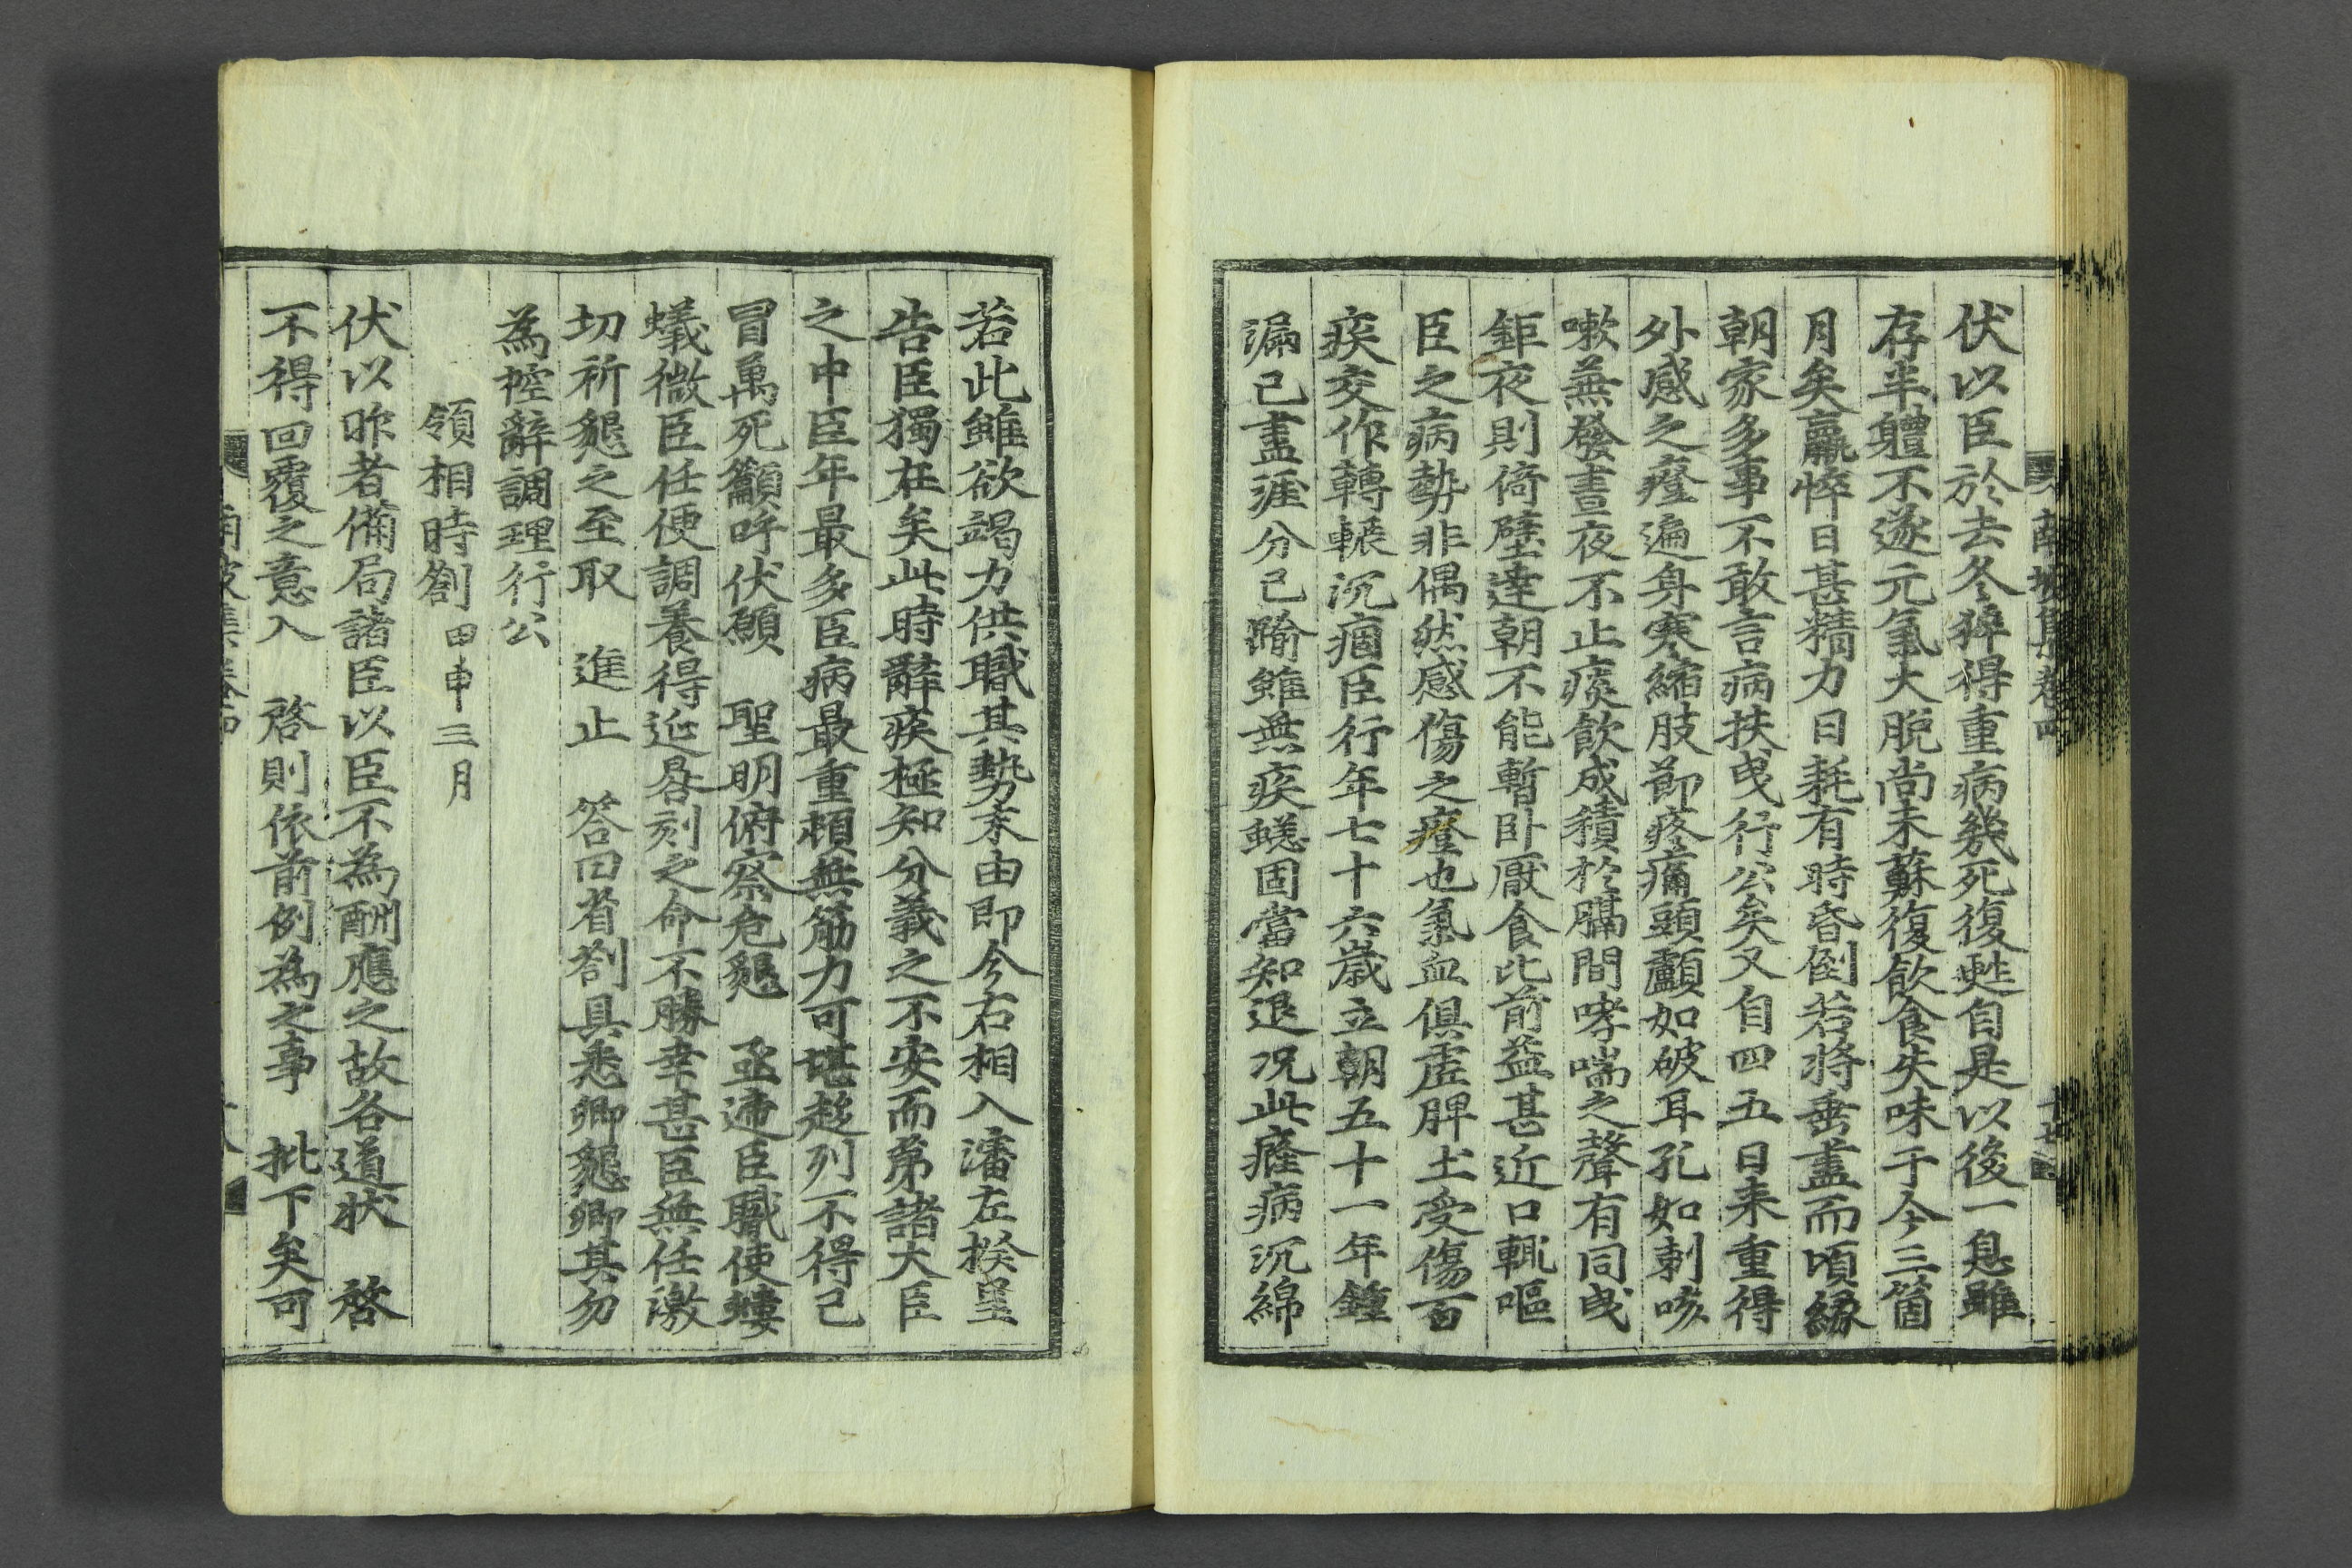 伏以臣於去冬猝得重病幾死復甦自是以後一息雖
存半軆不遂元氣大脫尚未蘇復飮食失味于今三箇
月矣羸悴日甚精力日耗有時昏倒若將垂盡而頃緣
朝家多事不敢言病扶曳行公矣又自四五日來重得
外感之證遍身寒縮肢節疼痛頭顱如破耳孔如刺咳
嗽兼發晝夜不止痰飮成積於膈間哮喘之聲有同曳
鉅夜則倚壁達朝不能暫卧厭食比前益甚近口輒嘔
臣之病勢非偶然感傷之證也氣血俱虛脾土受傷百
疾交作轉輾沉痼臣行年七十六歲立朝五十一年鍾
漏已盡涯分已踰雖無疾恙固當知退况此癃病沉綿
若此雖欲竭力供職其勢末由即今右相入瀋左揆呈
告臣獨在矣此時辭疾極知分義之不安而第諸大臣
之中臣年最多臣病最重頓無筋力可堪趍列不得已
冒萬死籲呼伏願　聖明俯察危懇　亟遞臣職使螻
蟻微臣任便調養得延晷刻之命不勝幸甚臣無任激
切祈懇之至取　進止　答曰省劄具悉卿懇卿其勿
為控辭調理行公
領相時劄 甲申三月
伏以昨者備局諸臣以臣不為酬應之故各道狀　啓
不得回覆之意入　啓則依前例為之事　批下矣可